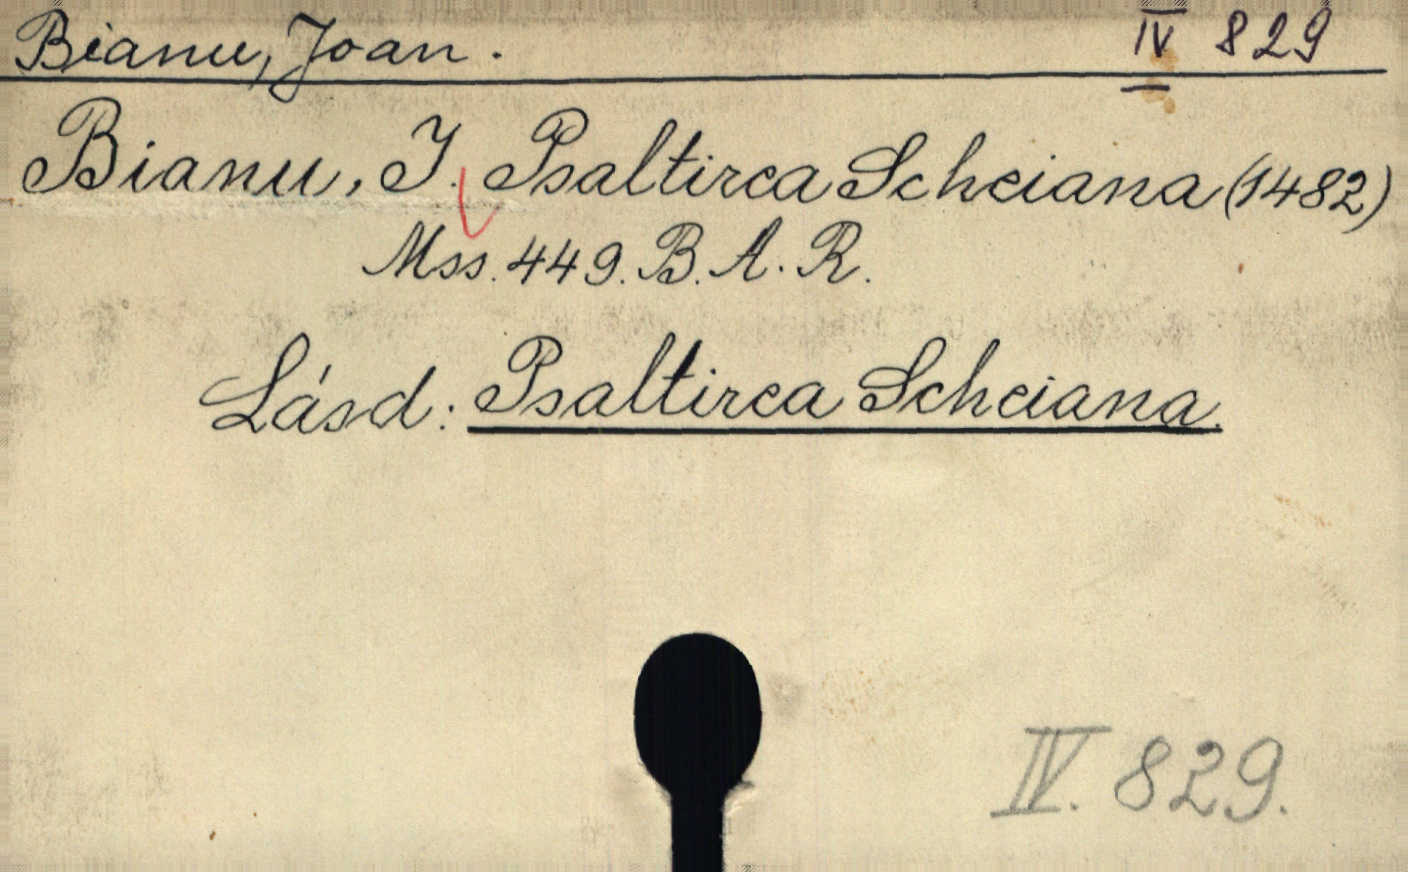 Bianu, Joan. IV 829
Bianu, I. Psaltirea Scheiana (1482)
Mss. 449. B. A. R.
Lásd: Psaltirea Scheiana.
IV. 829.